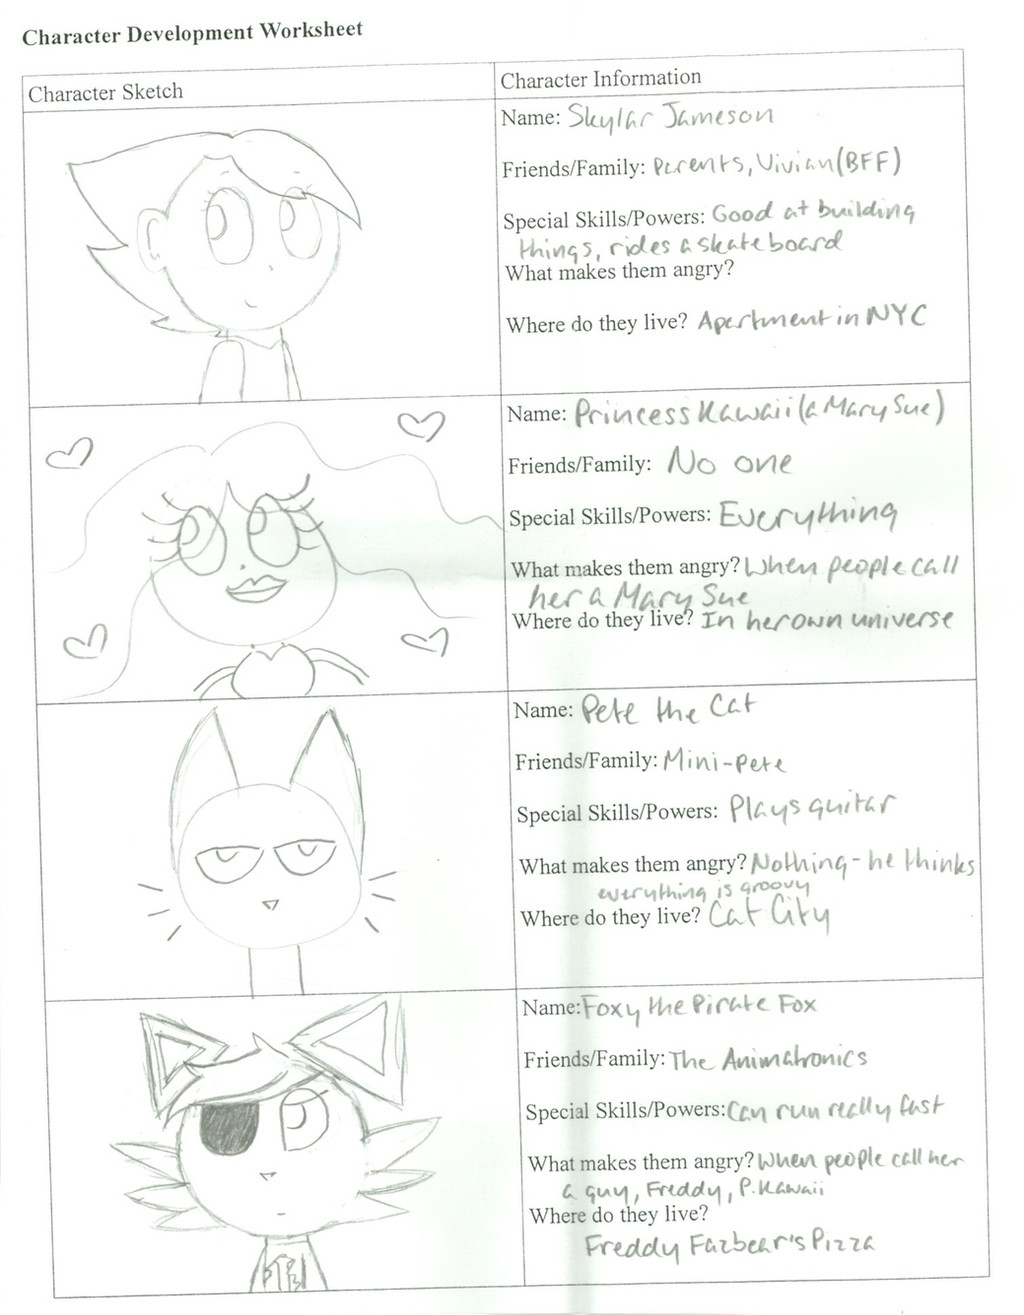 Character Development Worksheet
Character Sketch
Character Information
Name: Skylar Jameson
Friends/Family: Parents, Vivian (BFF)
Special Skills/Powers: Good at building
things, rides a skateboard
What makes them angry?
Where do they live? Apartment in NYC
Name: Princess Kawaii (a Mary Sue)
Friends/Family: No one
Special Skills/Powers: Everything
What makes them angry? When people call
her a Mary Sue
Where do they live? In her own universe
Name: Pete the Cat
Friends/Family: Mini-Pete
Special Skills/Powers: Plays guitar
What makes them angry? Nothing - he thinks
everything is groovy
Where do they live? Cat City
Name: Foxy the Pirate Fox
Friends/Family: The Animatronics
Special Skills/Powers: Can run really fast
What makes them angry? When people call her
a guy, Freddy, P. Kawaii
Where do they live?
Freddy Fazbear's Pizza